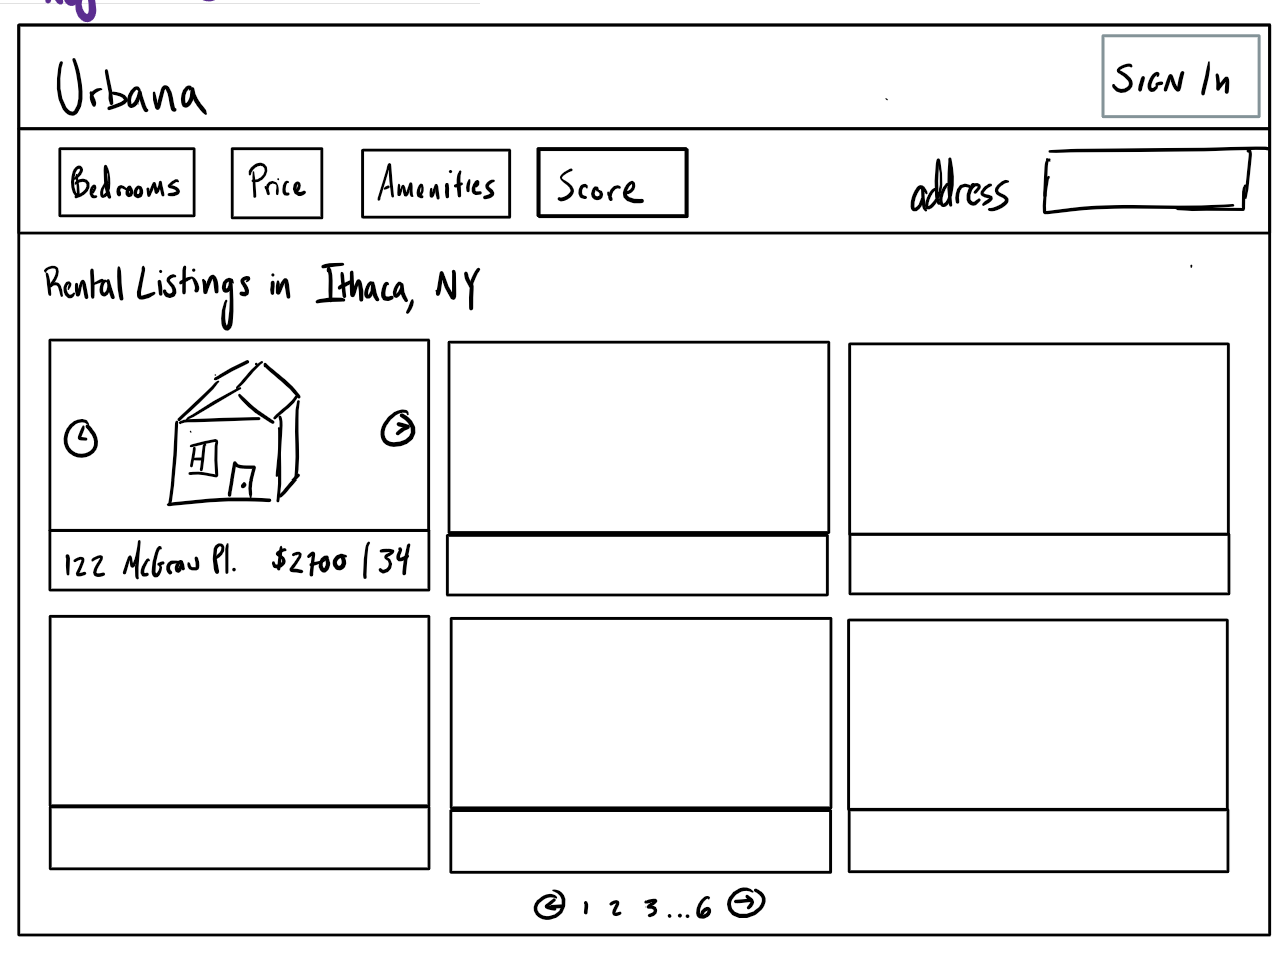 Urbana
SIGN In
Bedrooms Price Amenities Score address
Rental Listings in Ithaca, NY
122 McGraw Pl. $2700 / 34
1 2 3...6